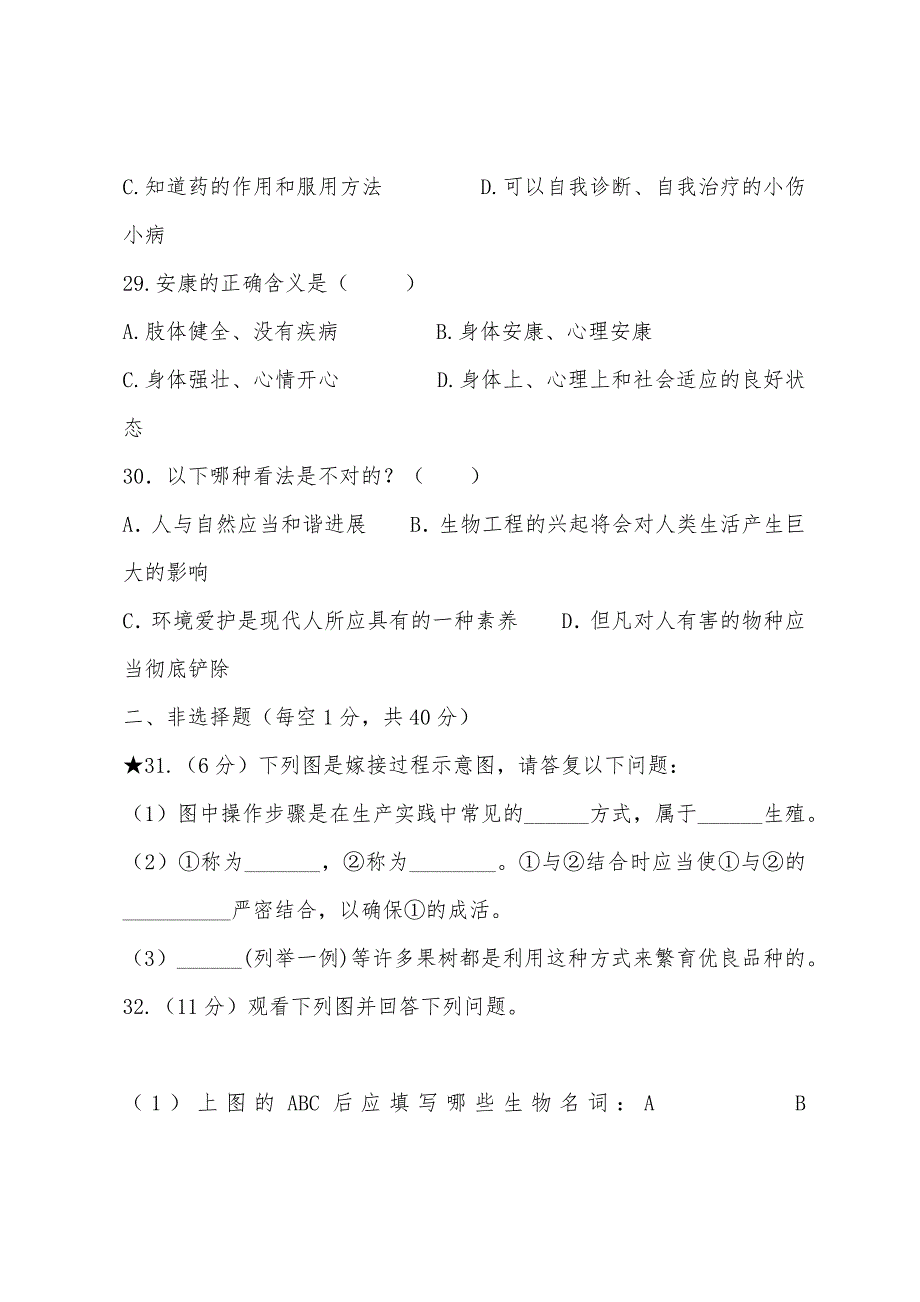 C.知道药的作用和服用方法 D.可以自我诊断、自我治疗的小伤
小病
29.安康的正确含义是（ ）
A.肢体健全、没有疾病 B.身体安康、心理安康
C.身体强壮、心情开心 D.身体上、心理上和社会适应的良好状
态
30．以下哪种看法是不对的？（ ）
A．人与自然应当和谐进展 B．生物工程的兴起将会对人类生活产生巨
大的影响
C．环境爱护是现代人所应具有的一种素养 D．但凡对人有害的物种应
当彻底铲除
二、非选择题（每空1分，共40分）
★31.（6分）下列图是嫁接过程示意图，请答复以下问题：
（1）图中操作步骤是在生产实践中常见的______方式，属于______生殖。
（2）①称为_______，②称为________。①与②结合时应当使①与②的
__________严密结合，以确保①的成活。
（3）______(列举一例)等许多果树都是利用这种方式来繁育优良品种的。
32.（11分）观看下列图并回答下列问题。
（1）上图的ABC后应填写哪些生物名词：A B